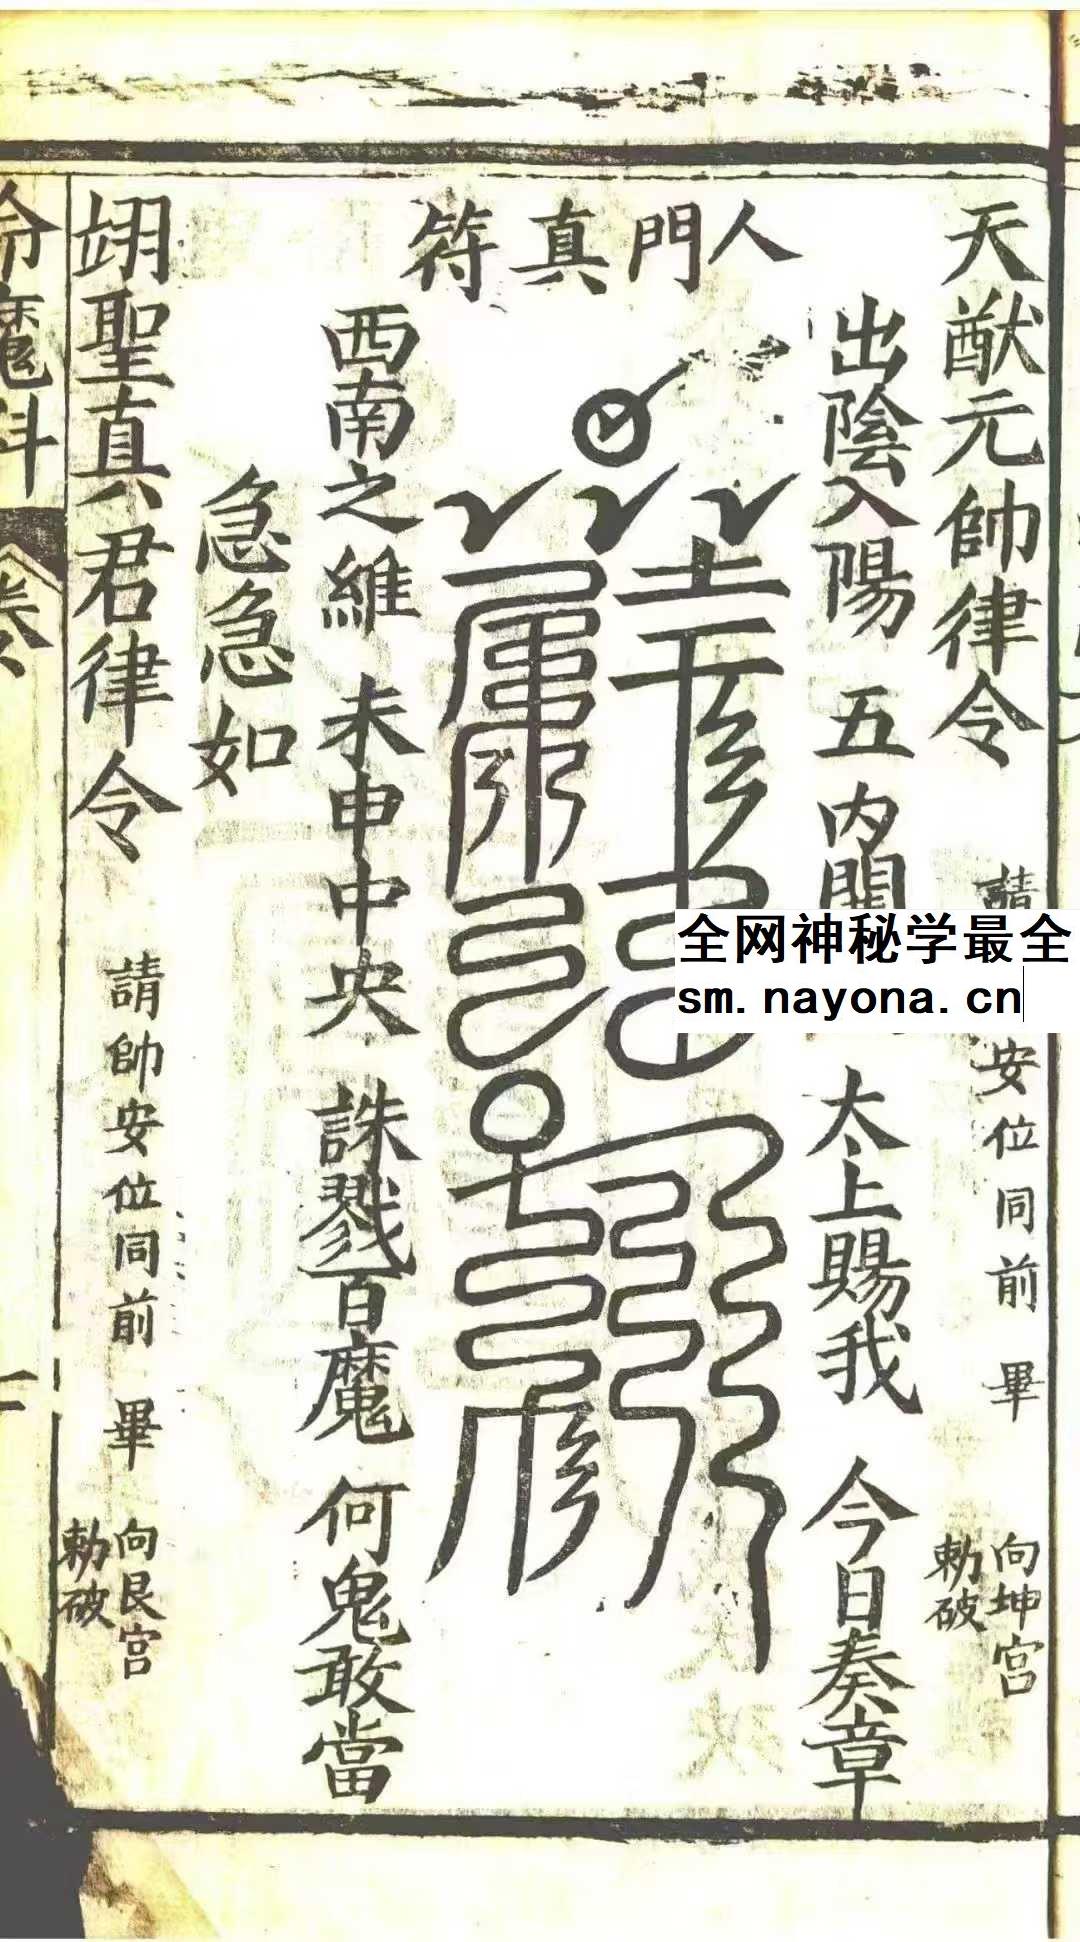 天猷元帥律令
請
安位同前 畢
向坤宮
勅破
人門真符
出陰入陽 五內開
太上賜我 今日奏章
西南之維 未申中央 誅戮百魔 何鬼敢當
急急如
翊聖真君律令
請帥安位同前 畢
向艮宮
勅破
命魔科
卷
全网神秘学最全
sm.nayona.cn